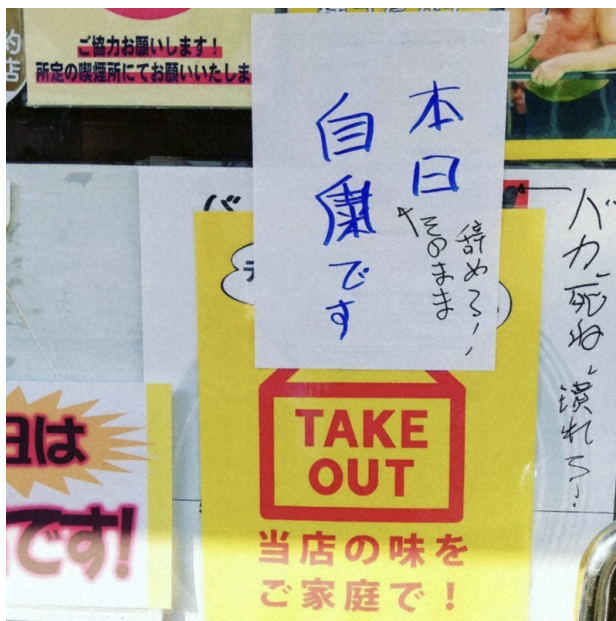 約
店
ご協力お願いします！
所定の喫煙所にてお願いいたしま
本日
自粛です
そのまま
辞めろ！
バカ、死ね、潰れろ！
バ
テ
TAKE
OUT
当店の味を
ご家庭で！
日は
です!